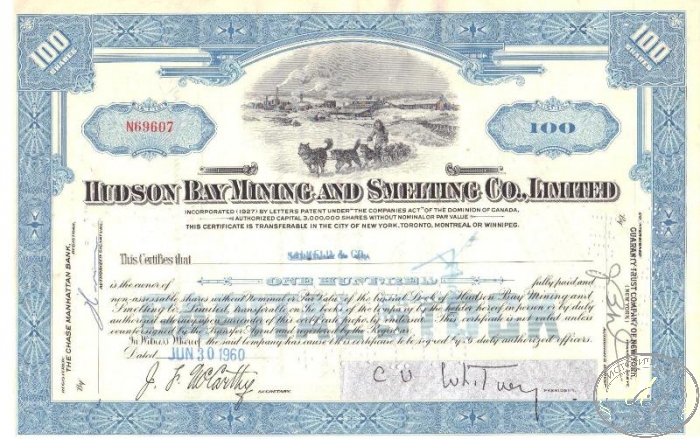 100 SHARES
100 SHARES
N69607
100
HUDSON BAY MINING AND SMELTING CO., LIMITED
INCORPORATED (1927) BY LETTERS PATENT UNDER "THE COMPANIES ACT" OF THE DOMINION OF CANADA.
AUTHORIZED CAPITAL 3,000,000 SHARES WITHOUT NOMINAL OR PAR VALUE
THIS CERTIFICATE IS TRANSFERABLE IN THE CITY OF NEW YORK, TORONTO, MONTREAL OR WINNIPEG.
This Certifies that
ONE HUNDRED
is the owner of fully paid and
non-assessable shares without Nominal or Par Value of the Capital Stock of Hudson Bay Mining and
Smelting Co., Limited, transferable on the books of the Company by the holder hereof in person or by duly
authorized attorney upon surrender of this certificate properly endorsed. This certificate is not valid unless
countersigned by the Transfer Agent and registered by the Registrar.
In Witness Whereof the said Company has caused this certificate to be signed by its duly authorized officers.
Dated JUN 30 1960
J. F. McCarthy SECRETARY.
C V Whitney PRESIDENT.
THE CHASE MANHATTAN BANK,
REGISTRAR.
By
AUTHORIZED SIGNATURE.
COUNTERSIGNED:
GUARANTY TRUST COMPANY OF NEW YORK,
By